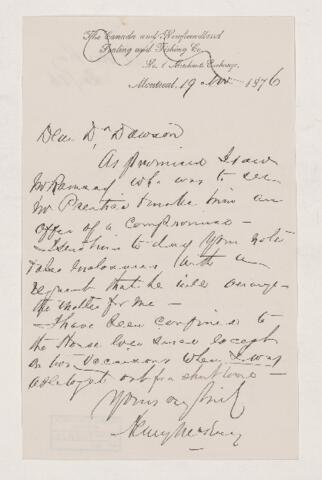 The Canada and Newfoundland
Sealing and Fishing Co.
No. 1 Merchants Exchange,
Montreal, 19 Nov 1876
Dear Dr Dawson
As promised I saw
Mr Ramsay who was to see
Mr Prentice & make him an
offer of a compromise –
I send him to day your note
enclosures with a
request that he will arrange
the matter for me –
I have been confined to
the House ever since except
on two occasions when I was
out for a short time –
Yours